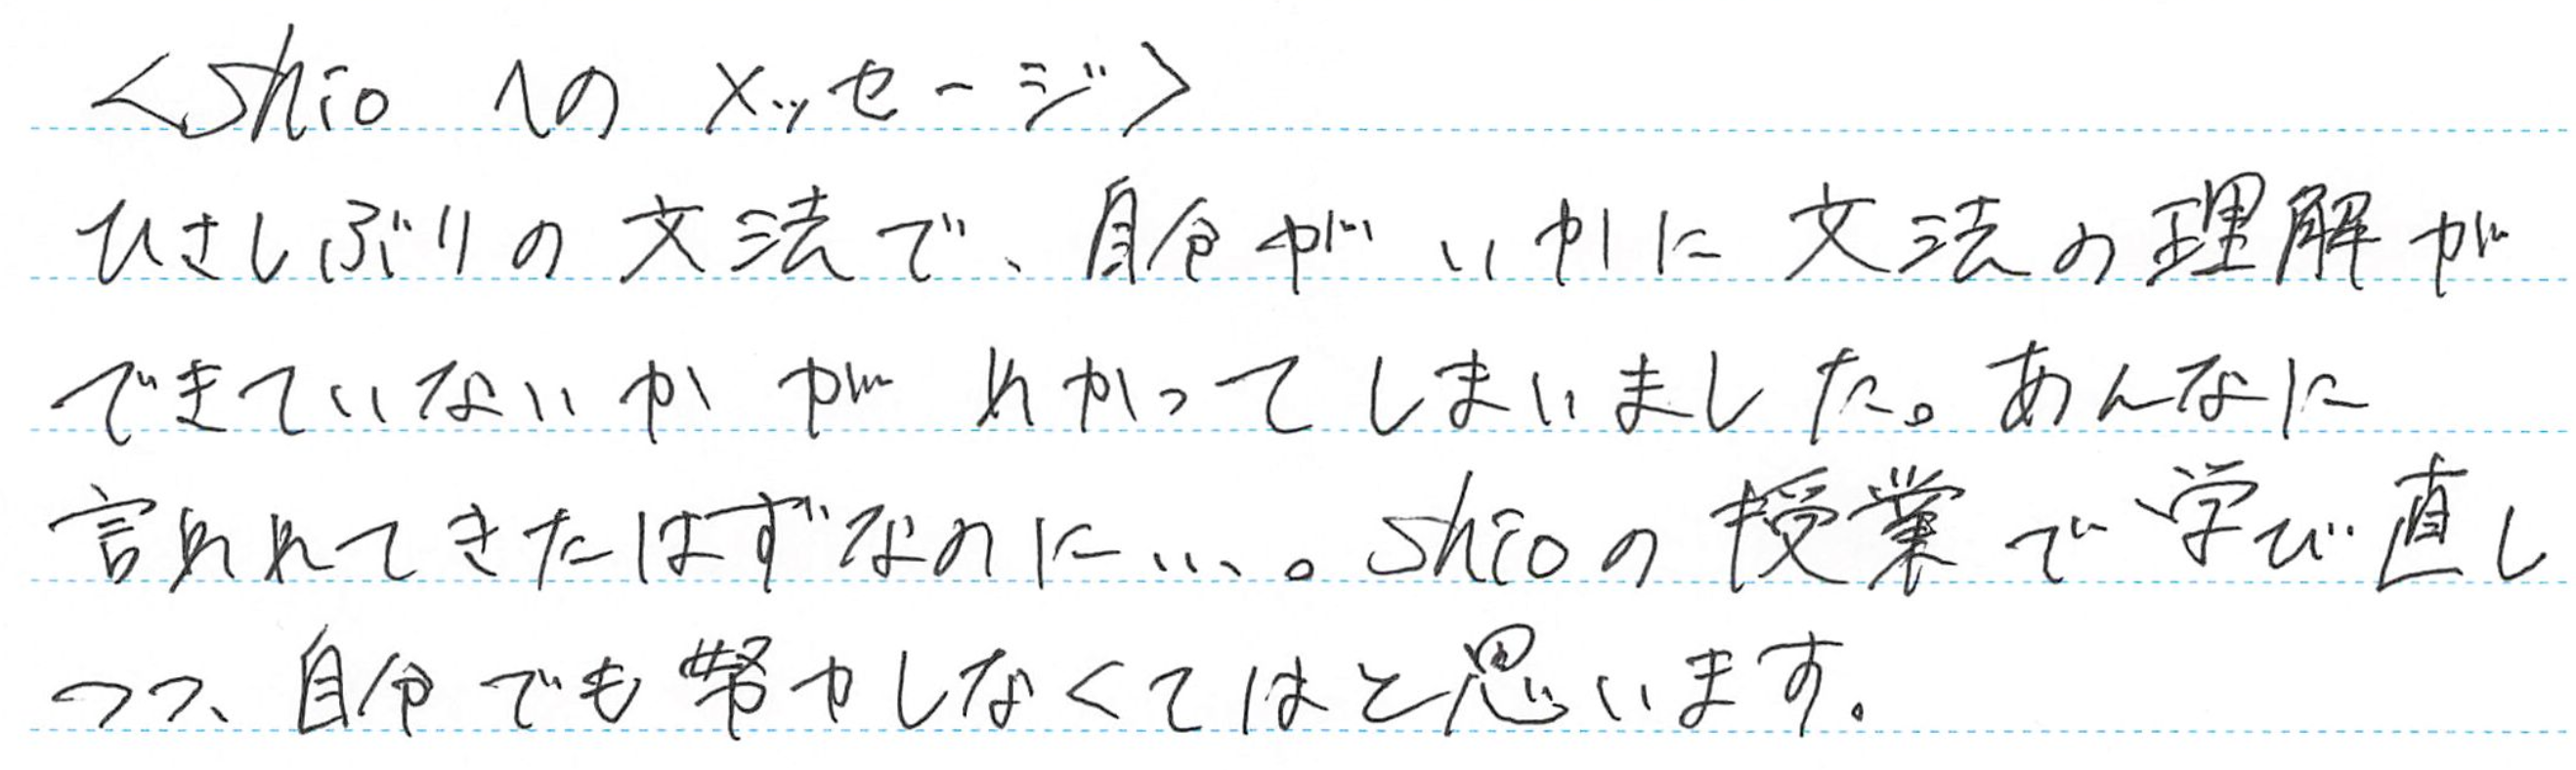 <Shioへのメッセージ>
ひさしぶりの文法で、自分がいかに文法の理解が
できていないかがわかってしまいました。あんなに
言われてきたはずなのに…。Shioの授業で学び直し
つつ、自分でも努力しなくてはと思います。